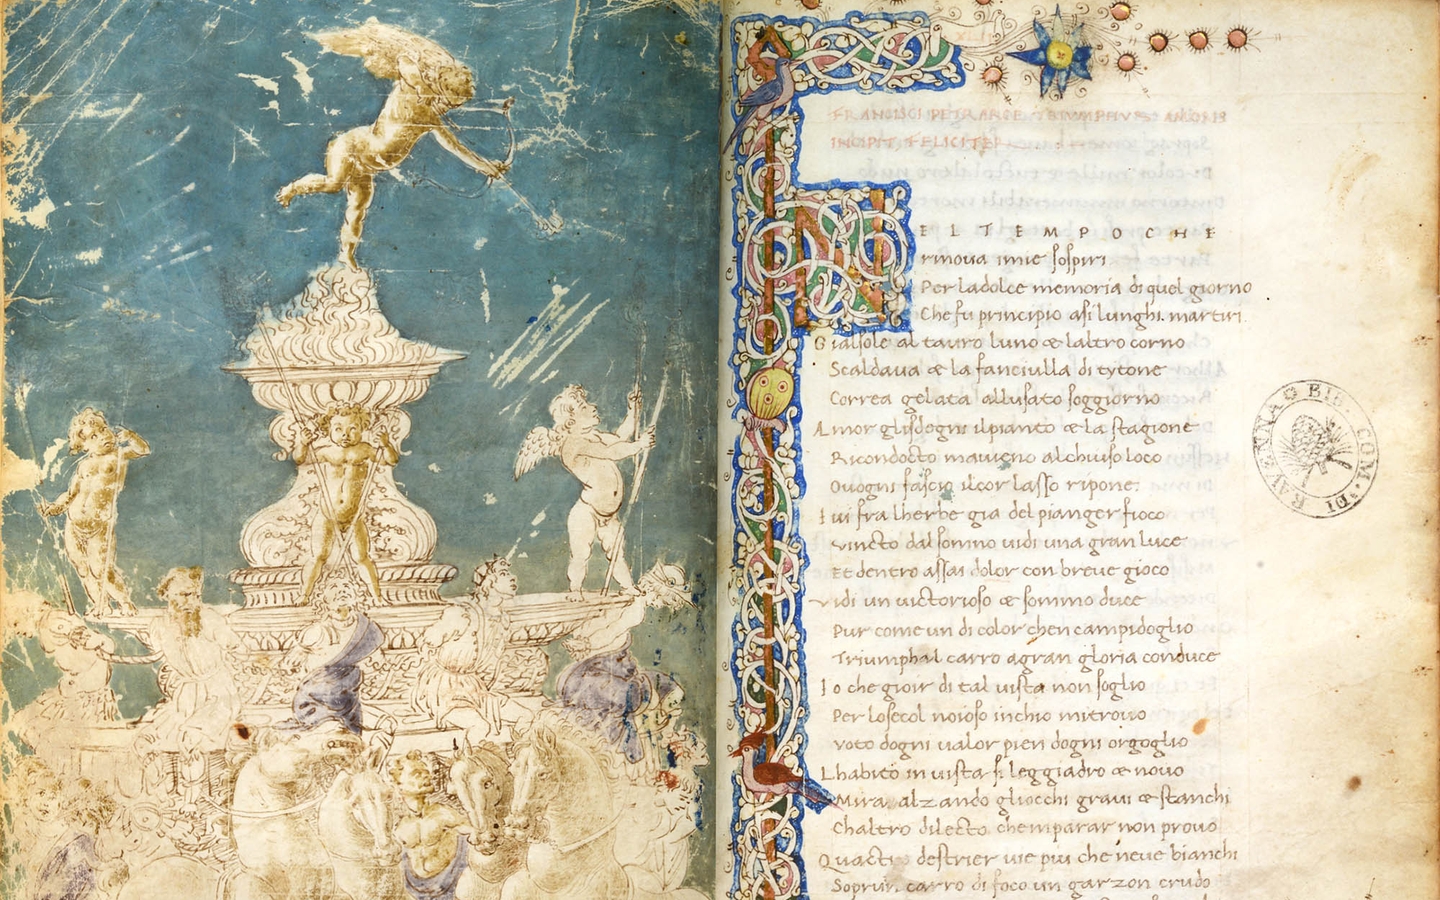 FRANCISCI PETRARCE TRIUMPHVS AMORIS
INCIPIT FELICITER
NEL TEMPO CHE
rinoua imie sospiri
Per la dolce memoria di quel giorno
Che fu principio asi lunghi martiri
Gia l sole al tauro luno & laltro corno
Scaldaua & la fanciulla di tytone
Correa gelata allusato soggiorno
Amor gli sdegni il pianto & la stagione
Ricondocto maueno al chiuso loco
Ouogni fascio il cor lasso ripone
Iui fra lherbe gia del pianger fioco
vincto dal sonno uidi una gran luce
Et dentro assai dolor con breue gioco
vidi un uictorioso & sommo duce
Pur come un di color chen campidoglio
Triumphal carro a gran gloria conduce
Io che gioir di tal uista non soglio
Per lo secol noioso inchio mi trouo
voto dogni ualor pien dogni orgoglio
Lhabito in uista si leggiadro & nouo
Mirai alzando gliocchi graui & stanchi
Chaltro dilecto chemparar non prouo
Quactro destrier uie piu che neue bianchi
Soprun carro di foco un garzon crudo
BIB COM DI RAVENNA